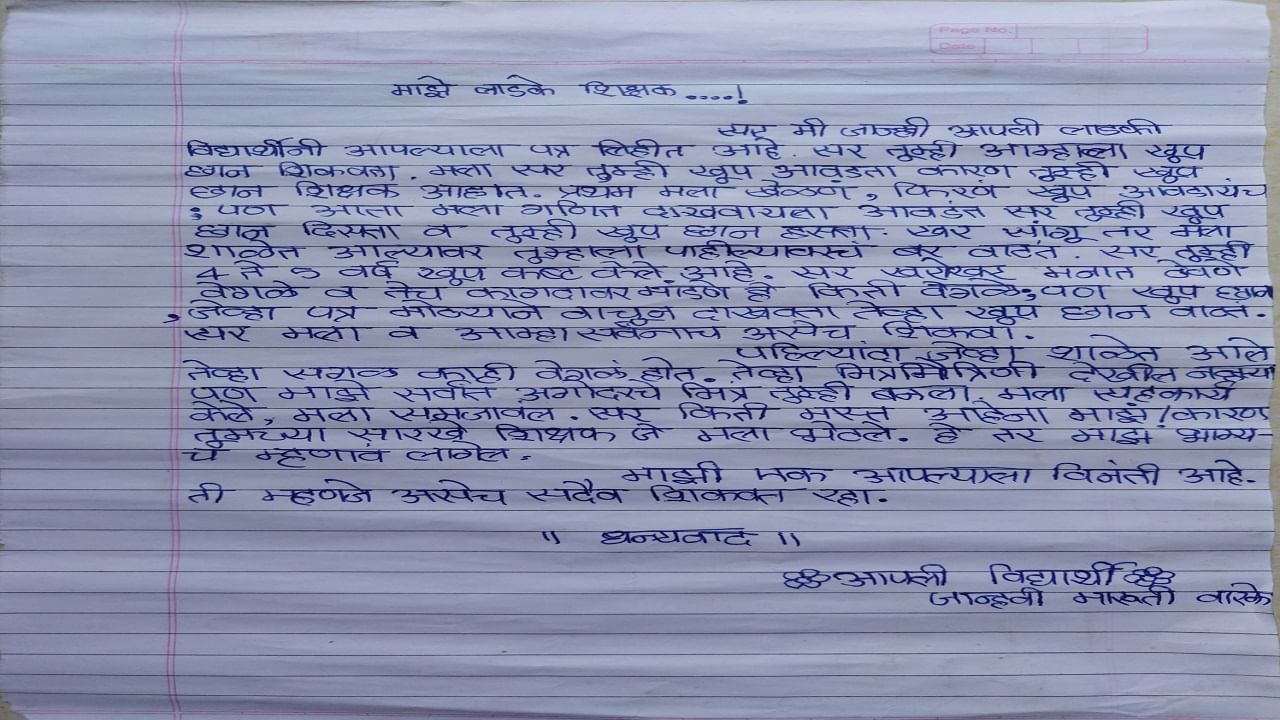 Page No.
Date
माझे लाडके शिक्षक.....!
सर मी जान्हवी आपली लाडकी
विद्यार्थीनी आपल्याला पत्र लिहीत आहे. सर तुम्ही आम्हाला खुप
छान शिकवता. मला सर तुम्ही खुप आवडता कारण तुम्ही खुप
छान शिक्षक आहात. प्रथम मला खेळणं, फिरणं खुप आवडायचं
; पण आता मला गणित दाखवायला आवडतं सर तुम्ही खुप
छान दिसता व तुम्ही खुप छान हसता. खरं सांगू तर मला
शाळेत आल्यावर तुम्हाला पाहील्यावरचं बरं वाटतं. सर तुम्ही
4 ते 5 वर्ष खुप कष्ट केले आहे. सर खरोखर मनात ठेवणे
वेगळे व तेच कागदावर मांडणे हे किती वेगळे; पण खुप छान
, जेव्हा पत्र मोठ्याने वाचुन दाखवता तेव्हा खुप छान वाटतं.
सर मला व आम्हा सर्वांनाच असेच शिकवा.
पहिल्यांदा जेव्हा शाळेत आले
तेव्हा सगळं काही वेगळं होतं. तेव्हा मित्रमैत्रिणी देखील नव्हत्या
पण माझे सर्वात अगोदरचे मित्र तुम्ही बनला. मला सहकार्य
केले, मला समजावलं. सर किती मस्त आहेना माझे! कारण
तुमच्या सारखे शिक्षक जे मला भेटले. हे तर माझं भाग्य-
चं म्हणावं लागेल.
माझी एक आपल्याला विनंती आहे.
ती म्हणजे असेच सदैव शिकवत रहा.
॥ धन्यवाद ॥
आपली विद्यार्थी
जान्हवी मारूती वारके